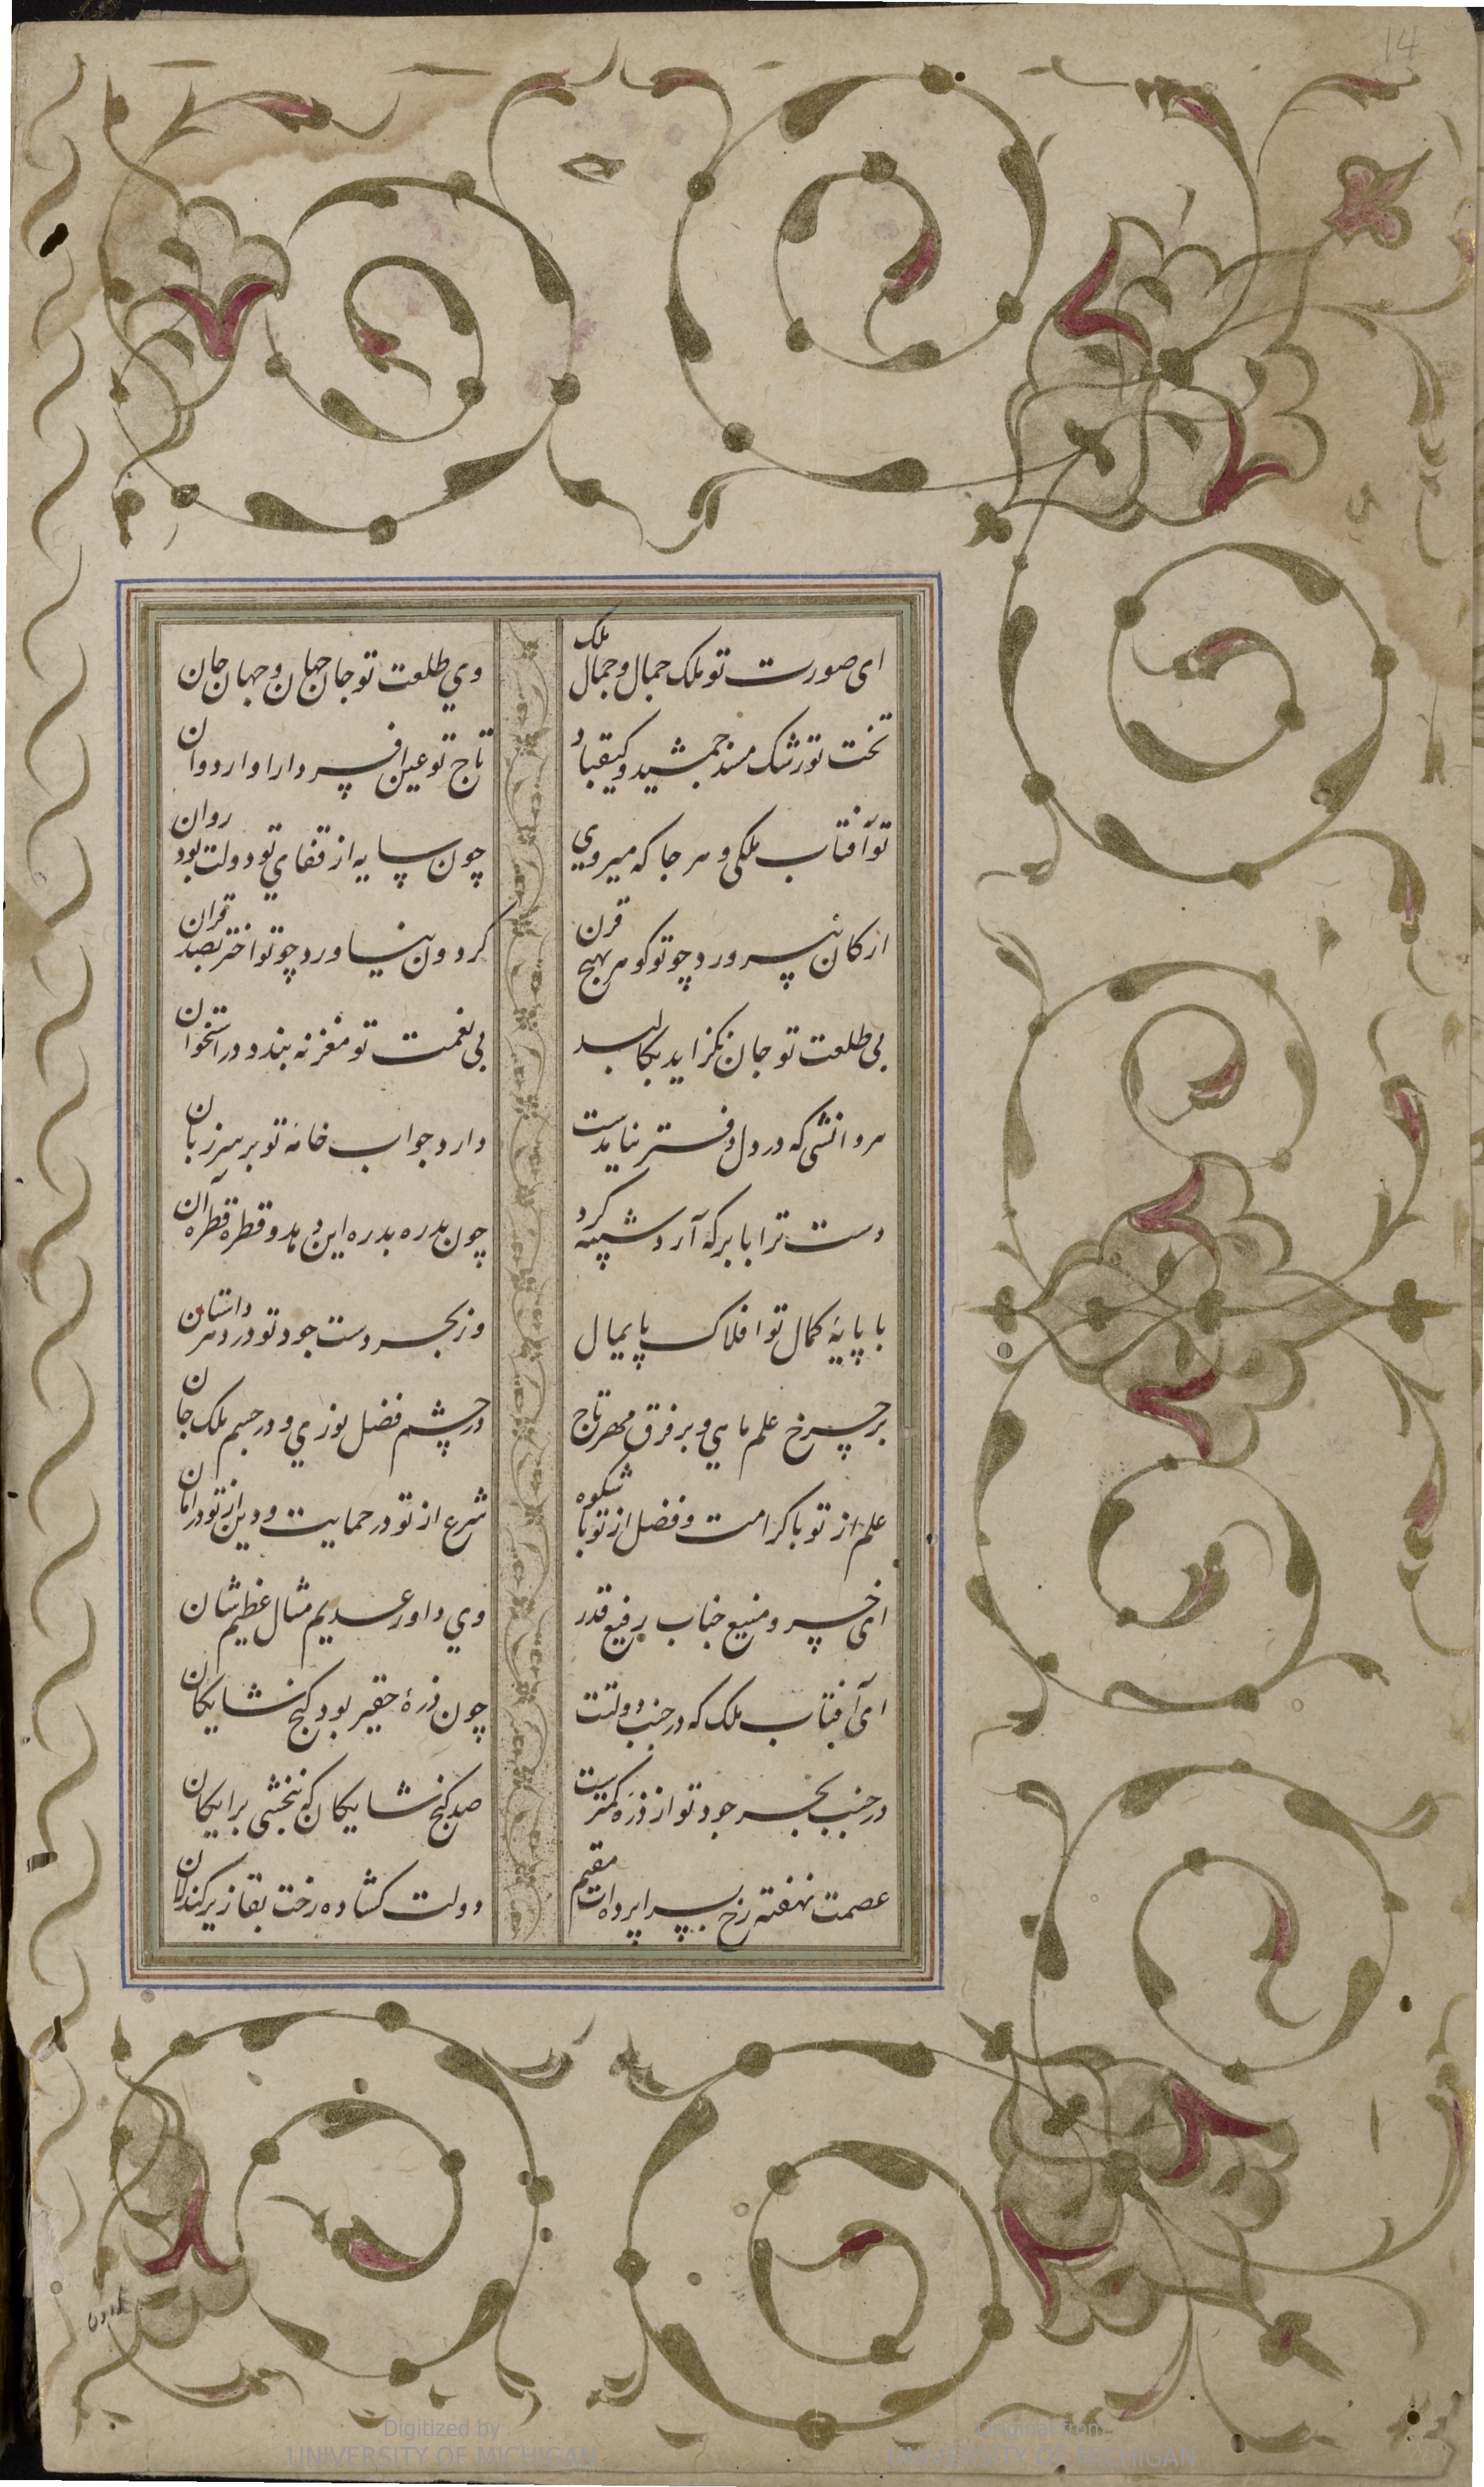 14
ای صورت تو ملک جمال و جمال ملک
وي طلعت تو جان جهان و جهان جان
تخت تو رشک مسند جمشید و کیقباد
تاج تو عین افسر دارا و اردوان
تو آفتاب ملکی و هر جا که میروي
چون سایه از قفاي تو دولت بود روان
ارکان نپرورد چو تو کوهر بهیچ قرن
کردون نیاورد چو تو اختر بصد قران
بی طلعت تو جان نکراید بکالبد
بی نعمت تو مغز نه بندد در استخوان
هر دانشی که در دل دفتر نیایدست
دارد جواب خامهٔ تو بر سر زبان
دست ترا بابر که آرد شبیه کرد
چون بدره بدره این دهد و قطره قطره آن
با پایهٔ کمال تو افلاک پایمال
وز بحر دست جود تو در دهر داستان
بر چرخ علم ماهي و بر فرق مهر تاج
در چشم فضل نوري و در جسم ملک جان
علم از تو با کرامت و فضل از تو با شکوه
شرع از تو در حمایت و دین از تو در امان
ای خسرو منیع جناب رفیع قدر
وي داور عدیم مثال عظیم شان
ای آفتاب ملک که در جنب دولتت
چون ذرهٔ حقیر بود کنج شایکان
در جنب بحر جود تو از ذره کمترست
صد کنج شایکان که ببخشی برایکان
عصمت نهفته رخ بسراپرده‌ات مقیم
دولت کشاده رخت بقا زیر کندلان
Digitized by
UNIVERSITY OF MICHIGAN
Original from
UNIVERSITY OF MICHIGAN